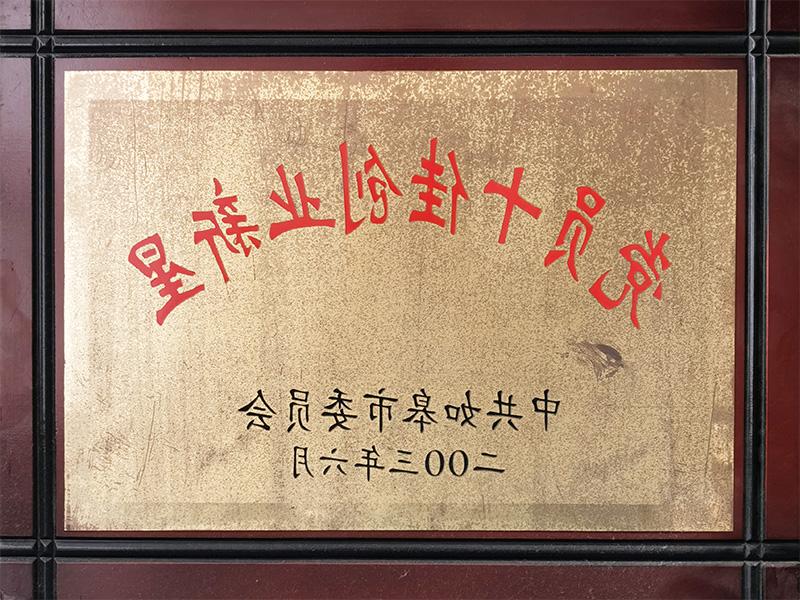 党员十佳创业新星
中共如皋市委员会
二OO三年六月